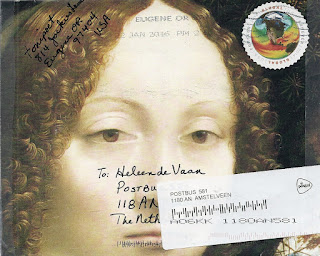 Eugene OR
97404
USA
EUGENE OR
JAN 2016 PM
GLOBAL
To: Heleen de Vaan
POSTBU
118 AN
The Neth
POSTBUS 581
1180 AN AMSTELVEEN
A06KK 1180AN581